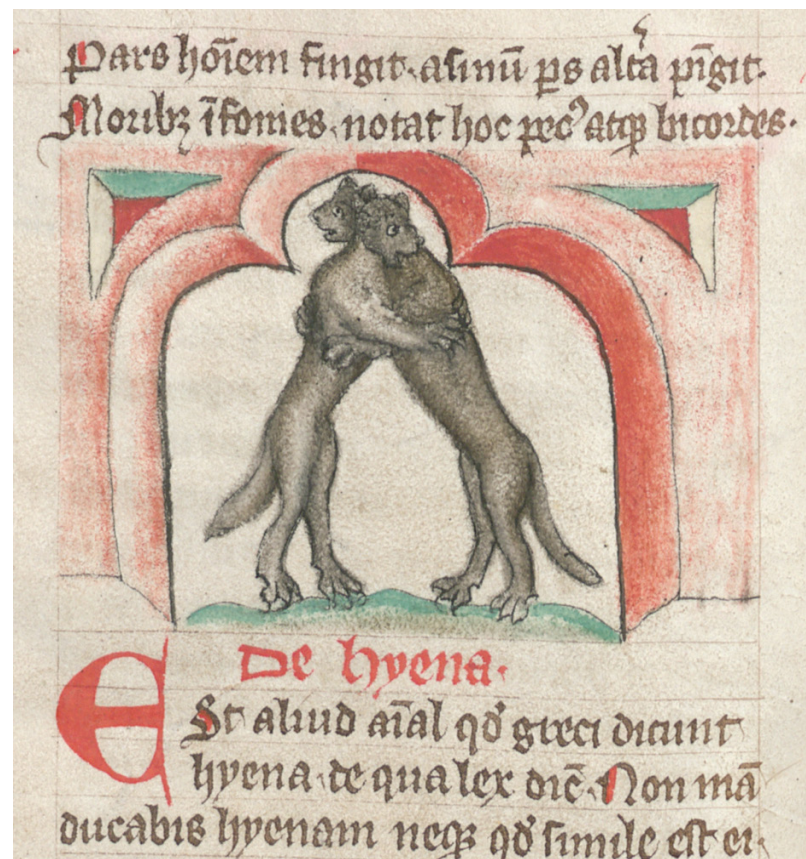 Pars hōiem fingit. asinū ps altᵃa pīgit.
Moribꝫ īfomes. notat hoc pecꝰ atqꝫ bicordes.
De hyena.
Est aliud aīal qđ greci dicunt
hyena. de qua lex diē. Non mā
ducabis hyenam neqꝫ qđ simile est ei.